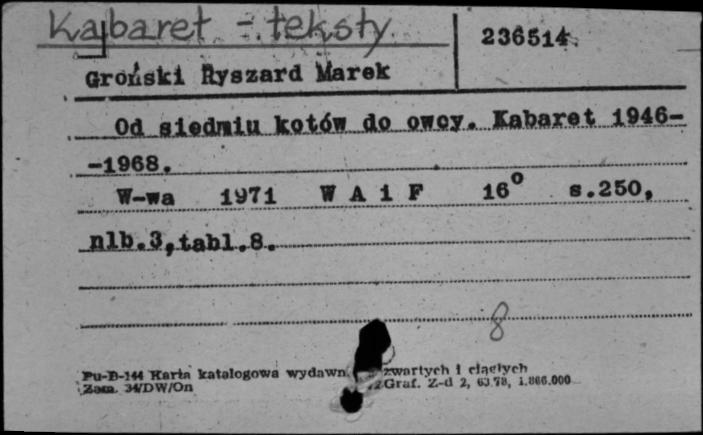 Kabaret - teksty
236514.
Groński Ryszard Marek
Od siedmiu kotów do owcy. Kabaret 1946-
-1968.
W-wa 1971 W A i F 16° s.250,
nlb.3,tabl.8.
8
Pu-B-144 Karta katalogowa wydawn. zwartych i ciągłych
Zam. 34/DW/On Graf. Z-d 2, 63.78, 1.866.000